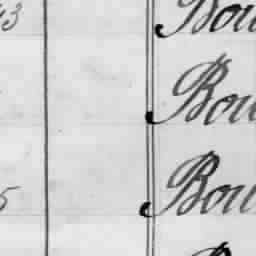 43 Bou
Bou
5 Bou